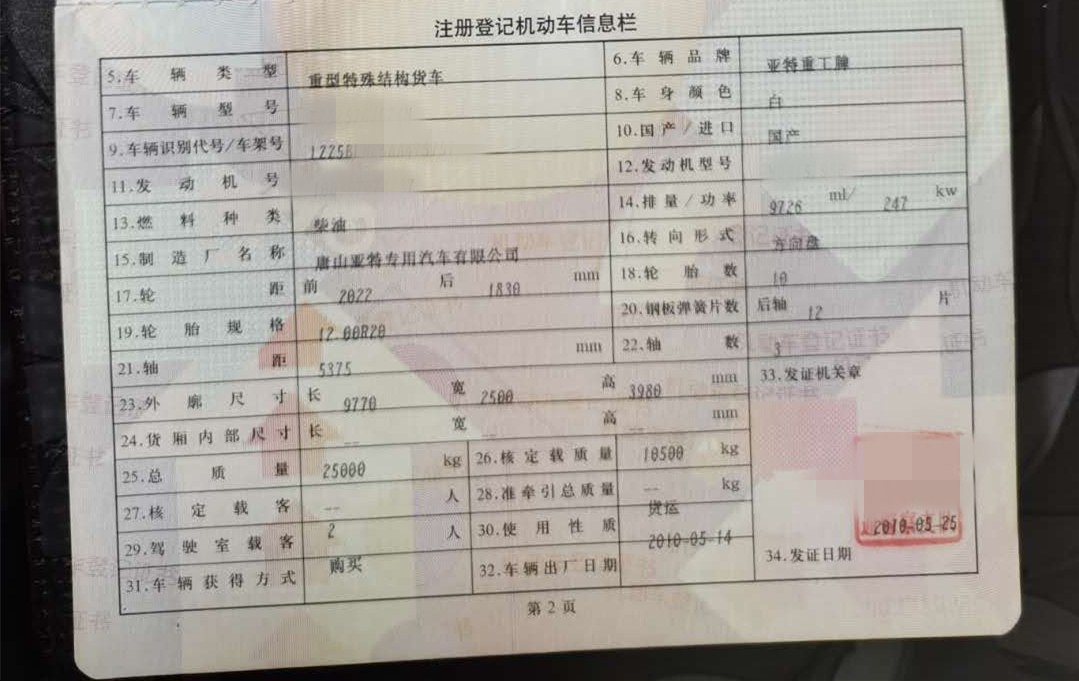 注册登记机动车信息栏
5.车辆类型 重型特殊结构货车 6.车辆品牌 亚特重工牌
7.车辆型号 8.车身颜色 白
9.车辆识别代号/车架号 10.国产/进口 国产
11.发动机号 12.发动机型号
13.燃料种类 柴油 14.排量/功率 9726 ml/ 247 kw
15.制造厂名称 唐山亚特专用汽车有限公司 16.转向形式 方向盘
17.轮距 前 2022 后 1830 mm 18.轮胎数 10
19.轮胎规格 12.00R20 20.钢板弹簧片数 后轴 12 片
21.轴距 5375 mm 22.轴数 3
23.外廓尺寸 长 9770 宽 2500 高 3980 mm 33.发证机关章
24.货厢内部尺寸 长 -- 宽 -- 高 -- mm
25.总质量 25000 kg 26.核定载质量 10500 kg
27.核定载客 -- 人 28.准牵引总质量 -- kg
29.驾驶室载客 2 人 30.使用性质 货运
31.车辆获得方式 购买 32.车辆出厂日期 2010-05-14 34.发证日期 2010-05-25
第2页